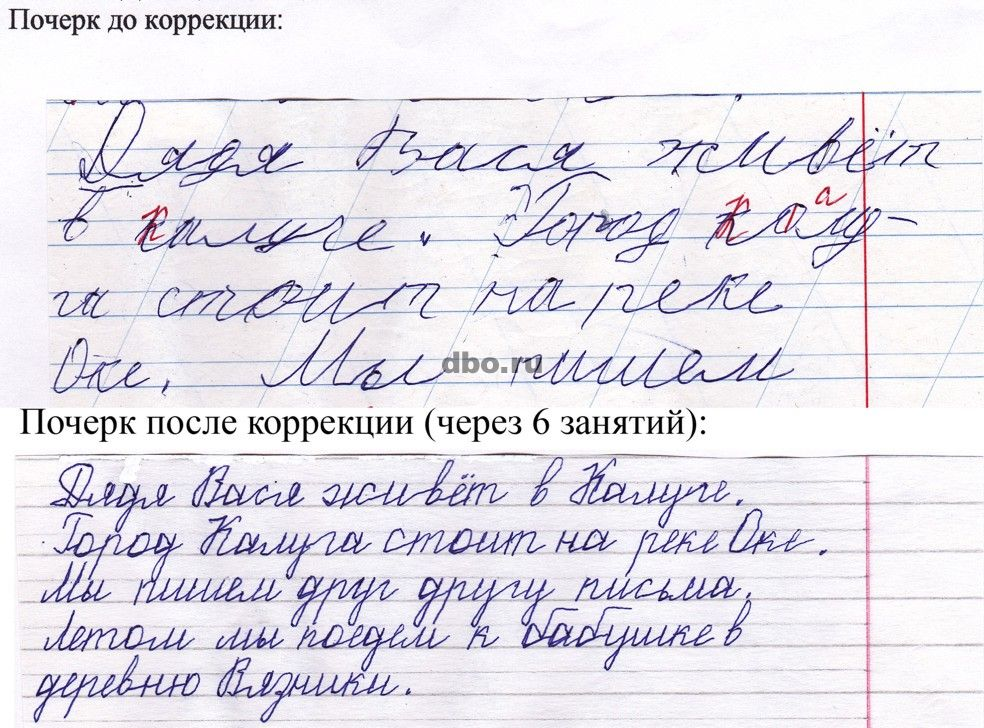 Почерк до коррекции:
Дядя Вася живёт
в калуге. Город Колу-
га стоит на реке
Оке. Мы пишем
dbo.ru
Почерк после коррекции (через 6 занятий):
Дядя Вася живёт в Калуге.
Город Калуга стоит на реке Оке.
Мы пишем друг другу письма.
Летом мы поедем к бабушке в
деревню Вязники.